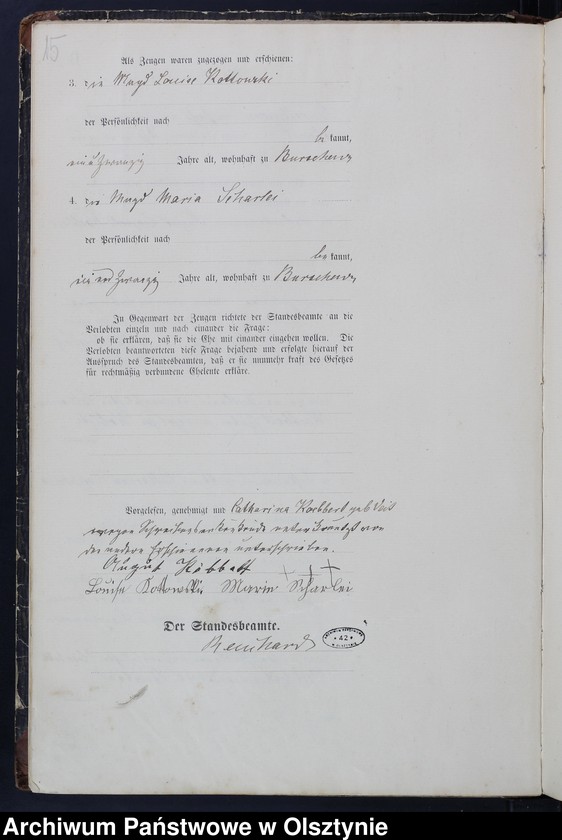 15
Als Zeugen waren zugezogen und erschienen:
3. die Magd Louise Kottowski
der Persönlichkeit nach
be kannt,
Jahre alt, wohnhaft zu
4. die Magd Maria Scharlei
der Persönlichkeit nach
be kannt,
ein und zwanzig Jahre alt, wohnhaft zu
In Gegenwart der Zeugen richtete der Standesbeamte an die
Verlobten einzeln und nach einander die Frage:
ob sie erklären, daß sie die Ehe mit einander eingehen wollen. Die
Verlobten beantworteten diese Frage bejahend und erfolgte hierauf der
Ausspruch des Standesbeamten, daß er sie nunmehr kraft des Gesetzes
für rechtmäßig verbundene Eheleute erkläre.
Vorgelesen, genehmigt und Catharina geb
wegen Schreibensunkunde unterkreuzt von
den andern Erschienenen unterschrieben.
August +++
Louise Kottowski Marin Scharlei
Der Standesbeamte.
Reinhard
42
Archiwum Państwowe w Olsztynie